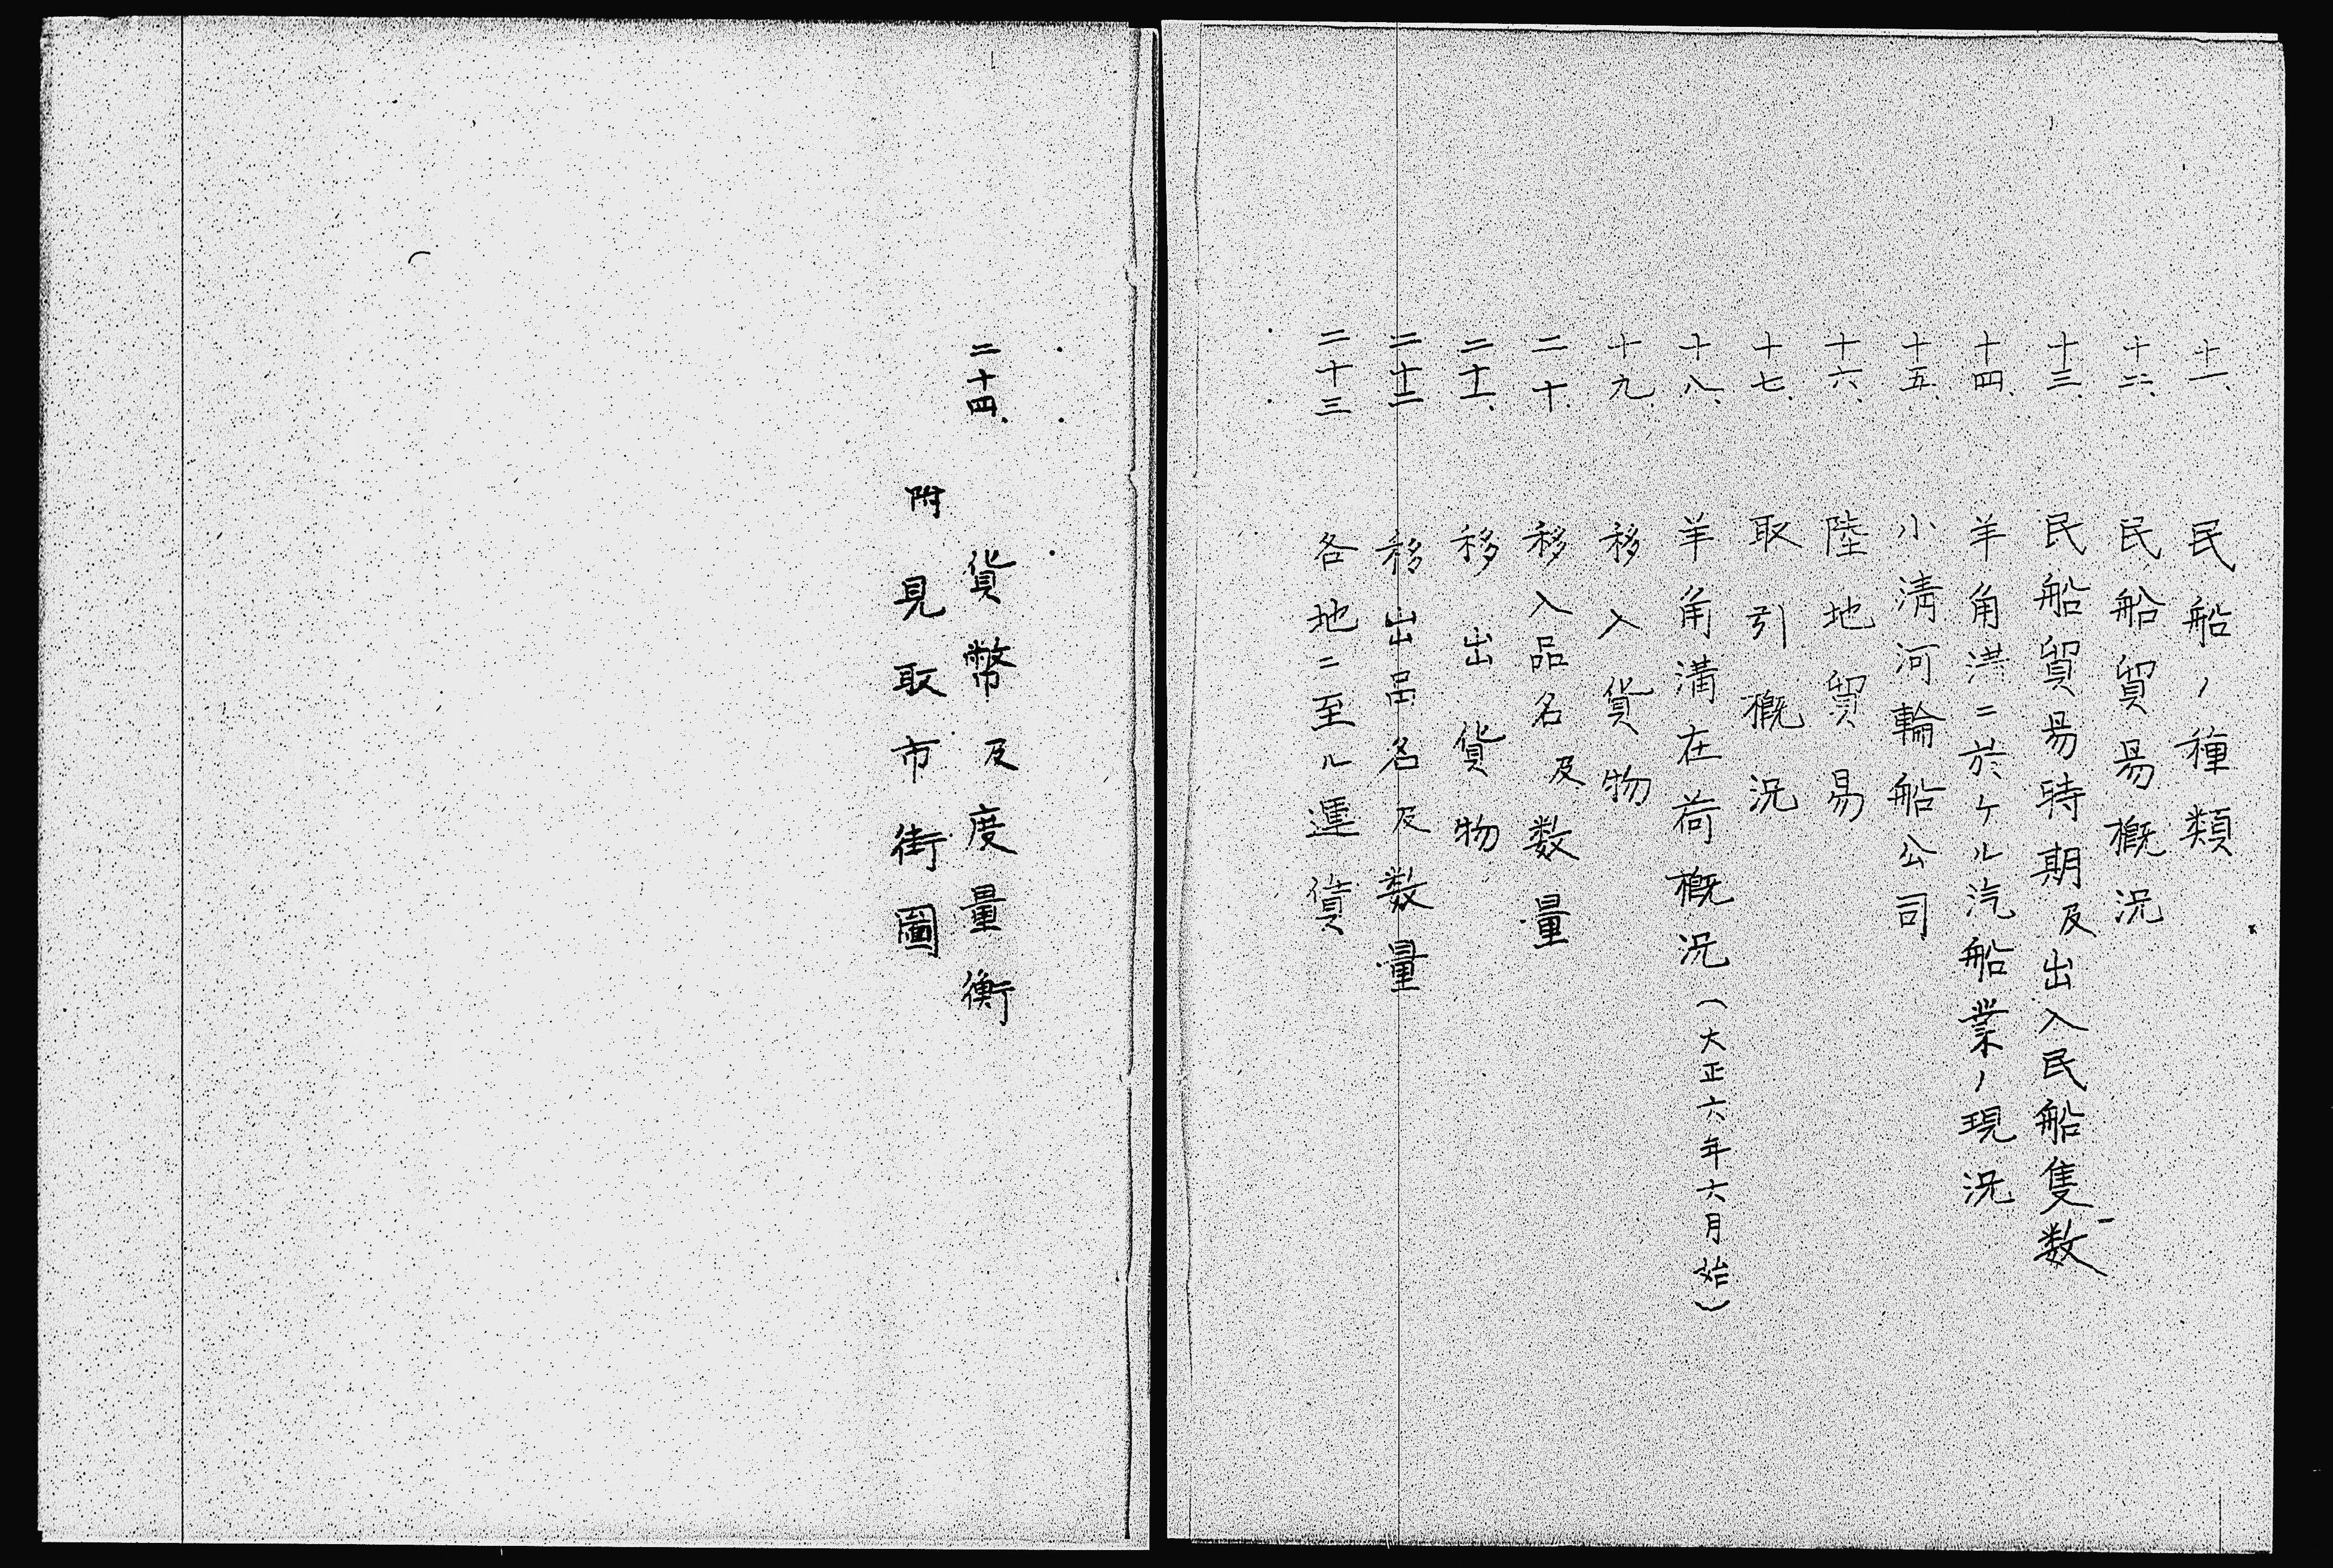 十一、民船ノ種類
十二、民船貿易概況
十三、民船貿易時期及出入民船隻数
十四、羊角溝ニ於ケル汽船業ノ現況
十五、小清河輪船公司
十六、陸地貿易
十七、取引概況
十八、羊角溝在荷概況(大正六年六月始)
十九、移入貨物
二十、移入品名及数量
二十一、移出貨物
二十二、移出品名及数量
二十三 各地ニ至ル運賃
二十四、貨幣及度量衡
附 見取市街圖